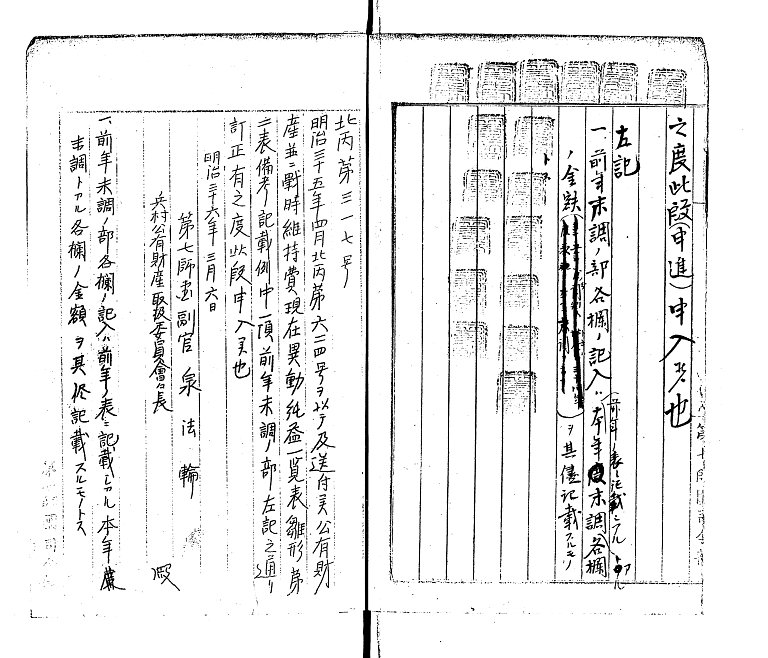 之度此段(申進)申入候也
左記
一、前年末調ノ部各欄ノ記入ハ本年度末調各欄
(前年ノ表ニ記載シアル
ノ金額
ヲ其儘記載スルモノ
北丙第三一七号
明治三十五年四月北丙第六二四号ヲ以テ及送付候公有財
産並ニ戰時維持費現在異動純益一覧表雛形第
二表備考ノ記載例中一項前年末調ノ部左記之通リ
訂正有之度此段申入候也
明治三十六年三月六日
第七師団副官泉法輪
兵村公有財産取扱委員會長 殿
一、前年末調ノ部各欄ノ記入ハ前年ノ表ニ記載シアル本年度
末調トアル各欄ノ金額ヲ其侭記載スルモノトス